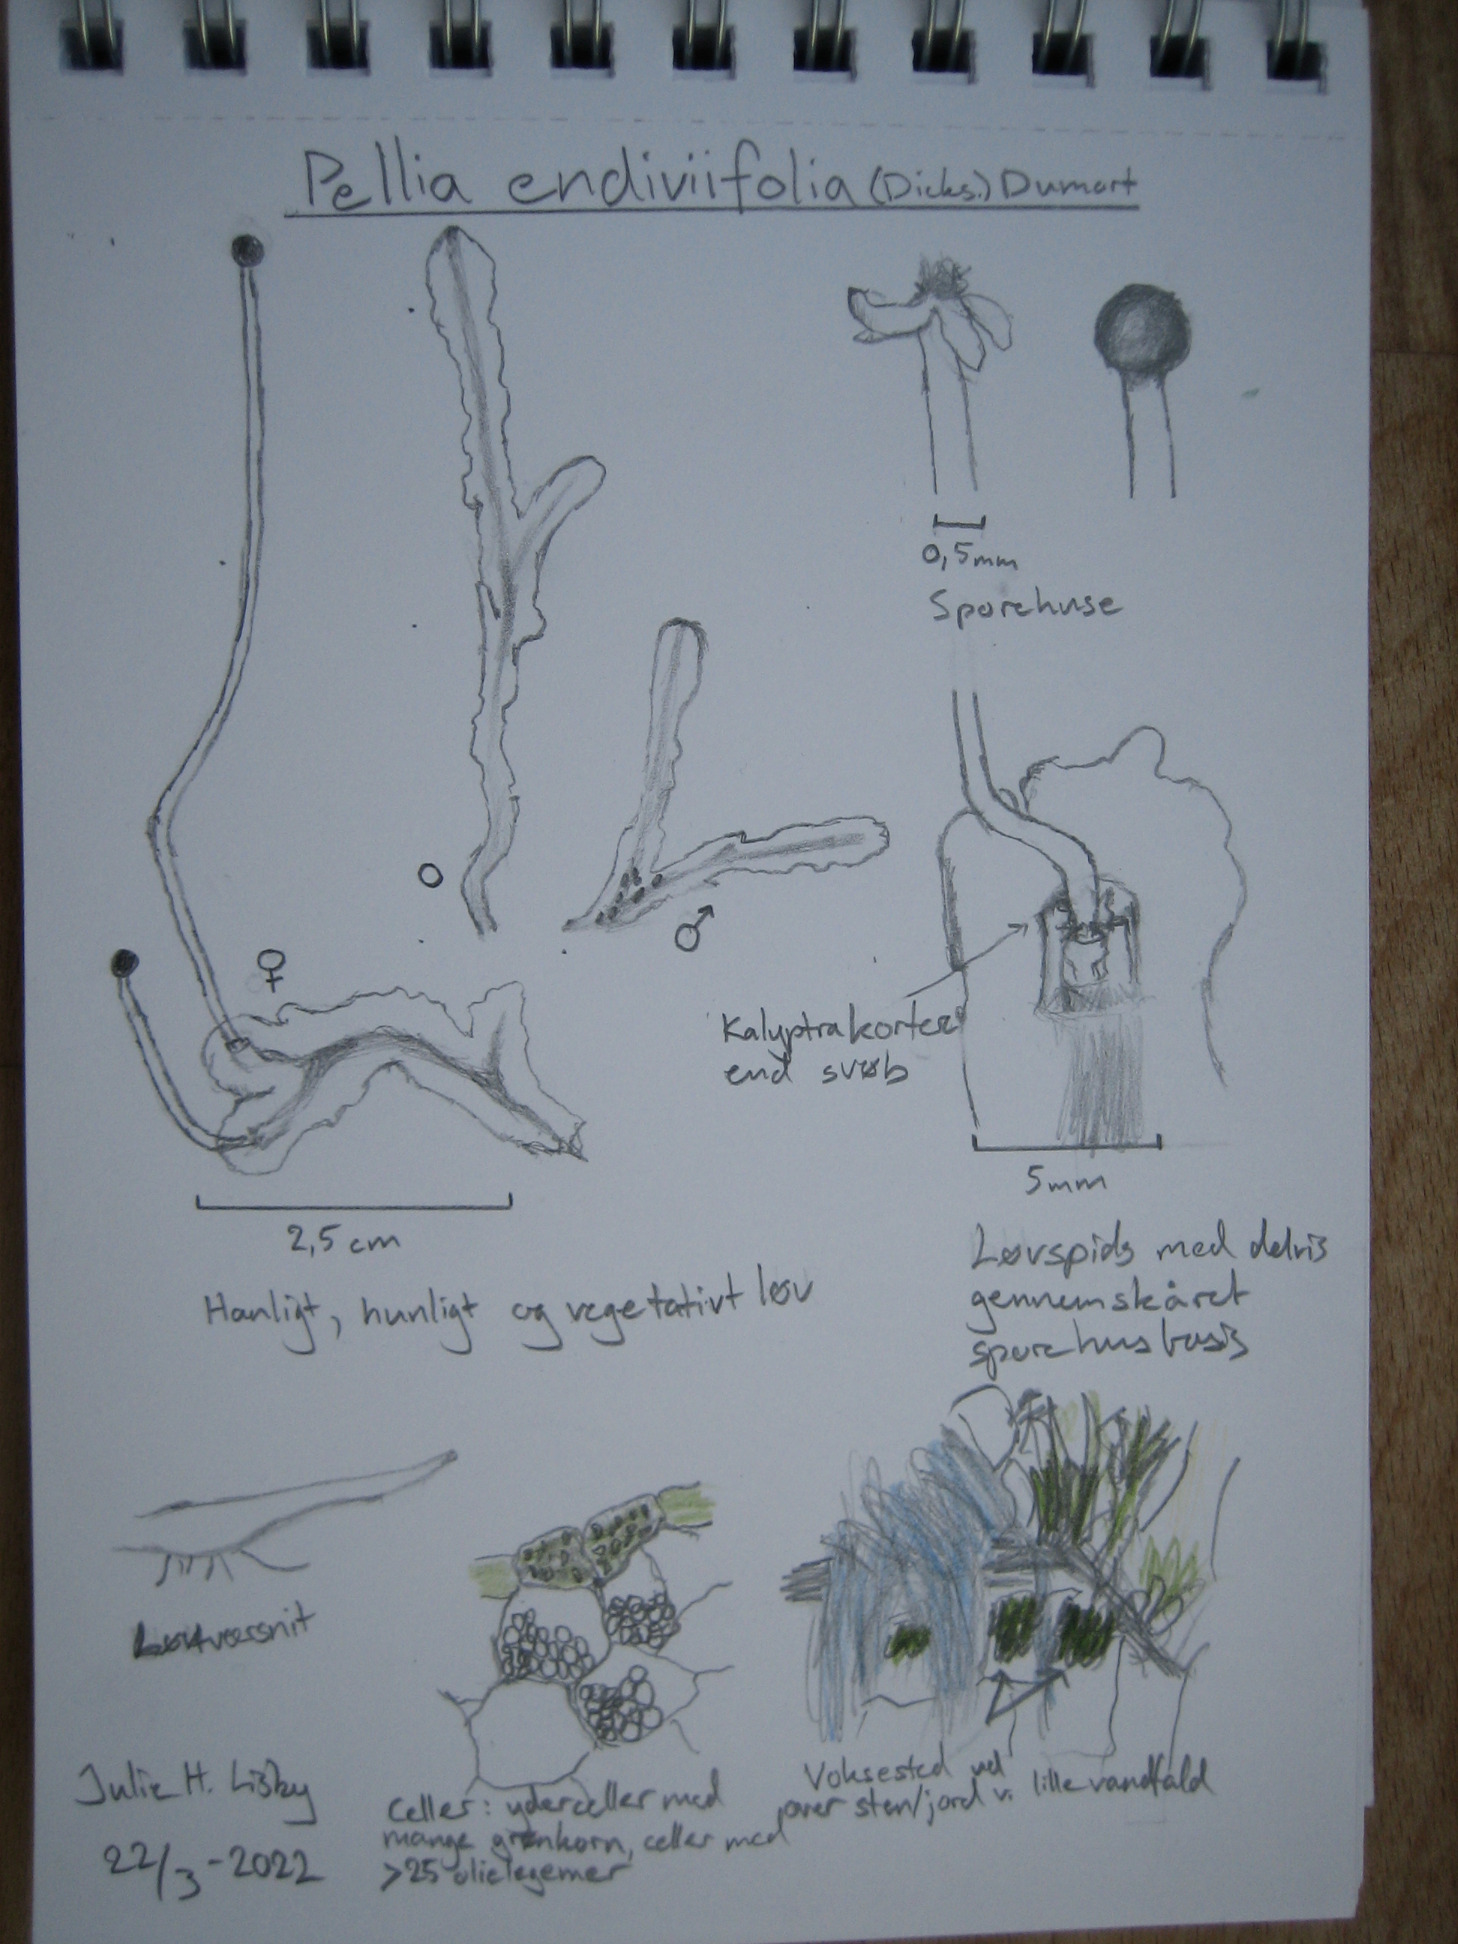 Pellia endiviifolia (Dicks.) Dumort
0,5mm
Sporehuse
♂
♀
Kalyptra kortere
end svøb
5mm
2,5 cm
Hanligt, hunligt og vegetativt løv
Løvspids med delvis
gennemskåret
sporehus basis
Løvtværsnit
Julie H. Lisby
22/3-2022
Celler: yderceller med
mange grønkorn, celler med
>25 olielegemer
Voksested ved
over sten/jord v. lille vandfald